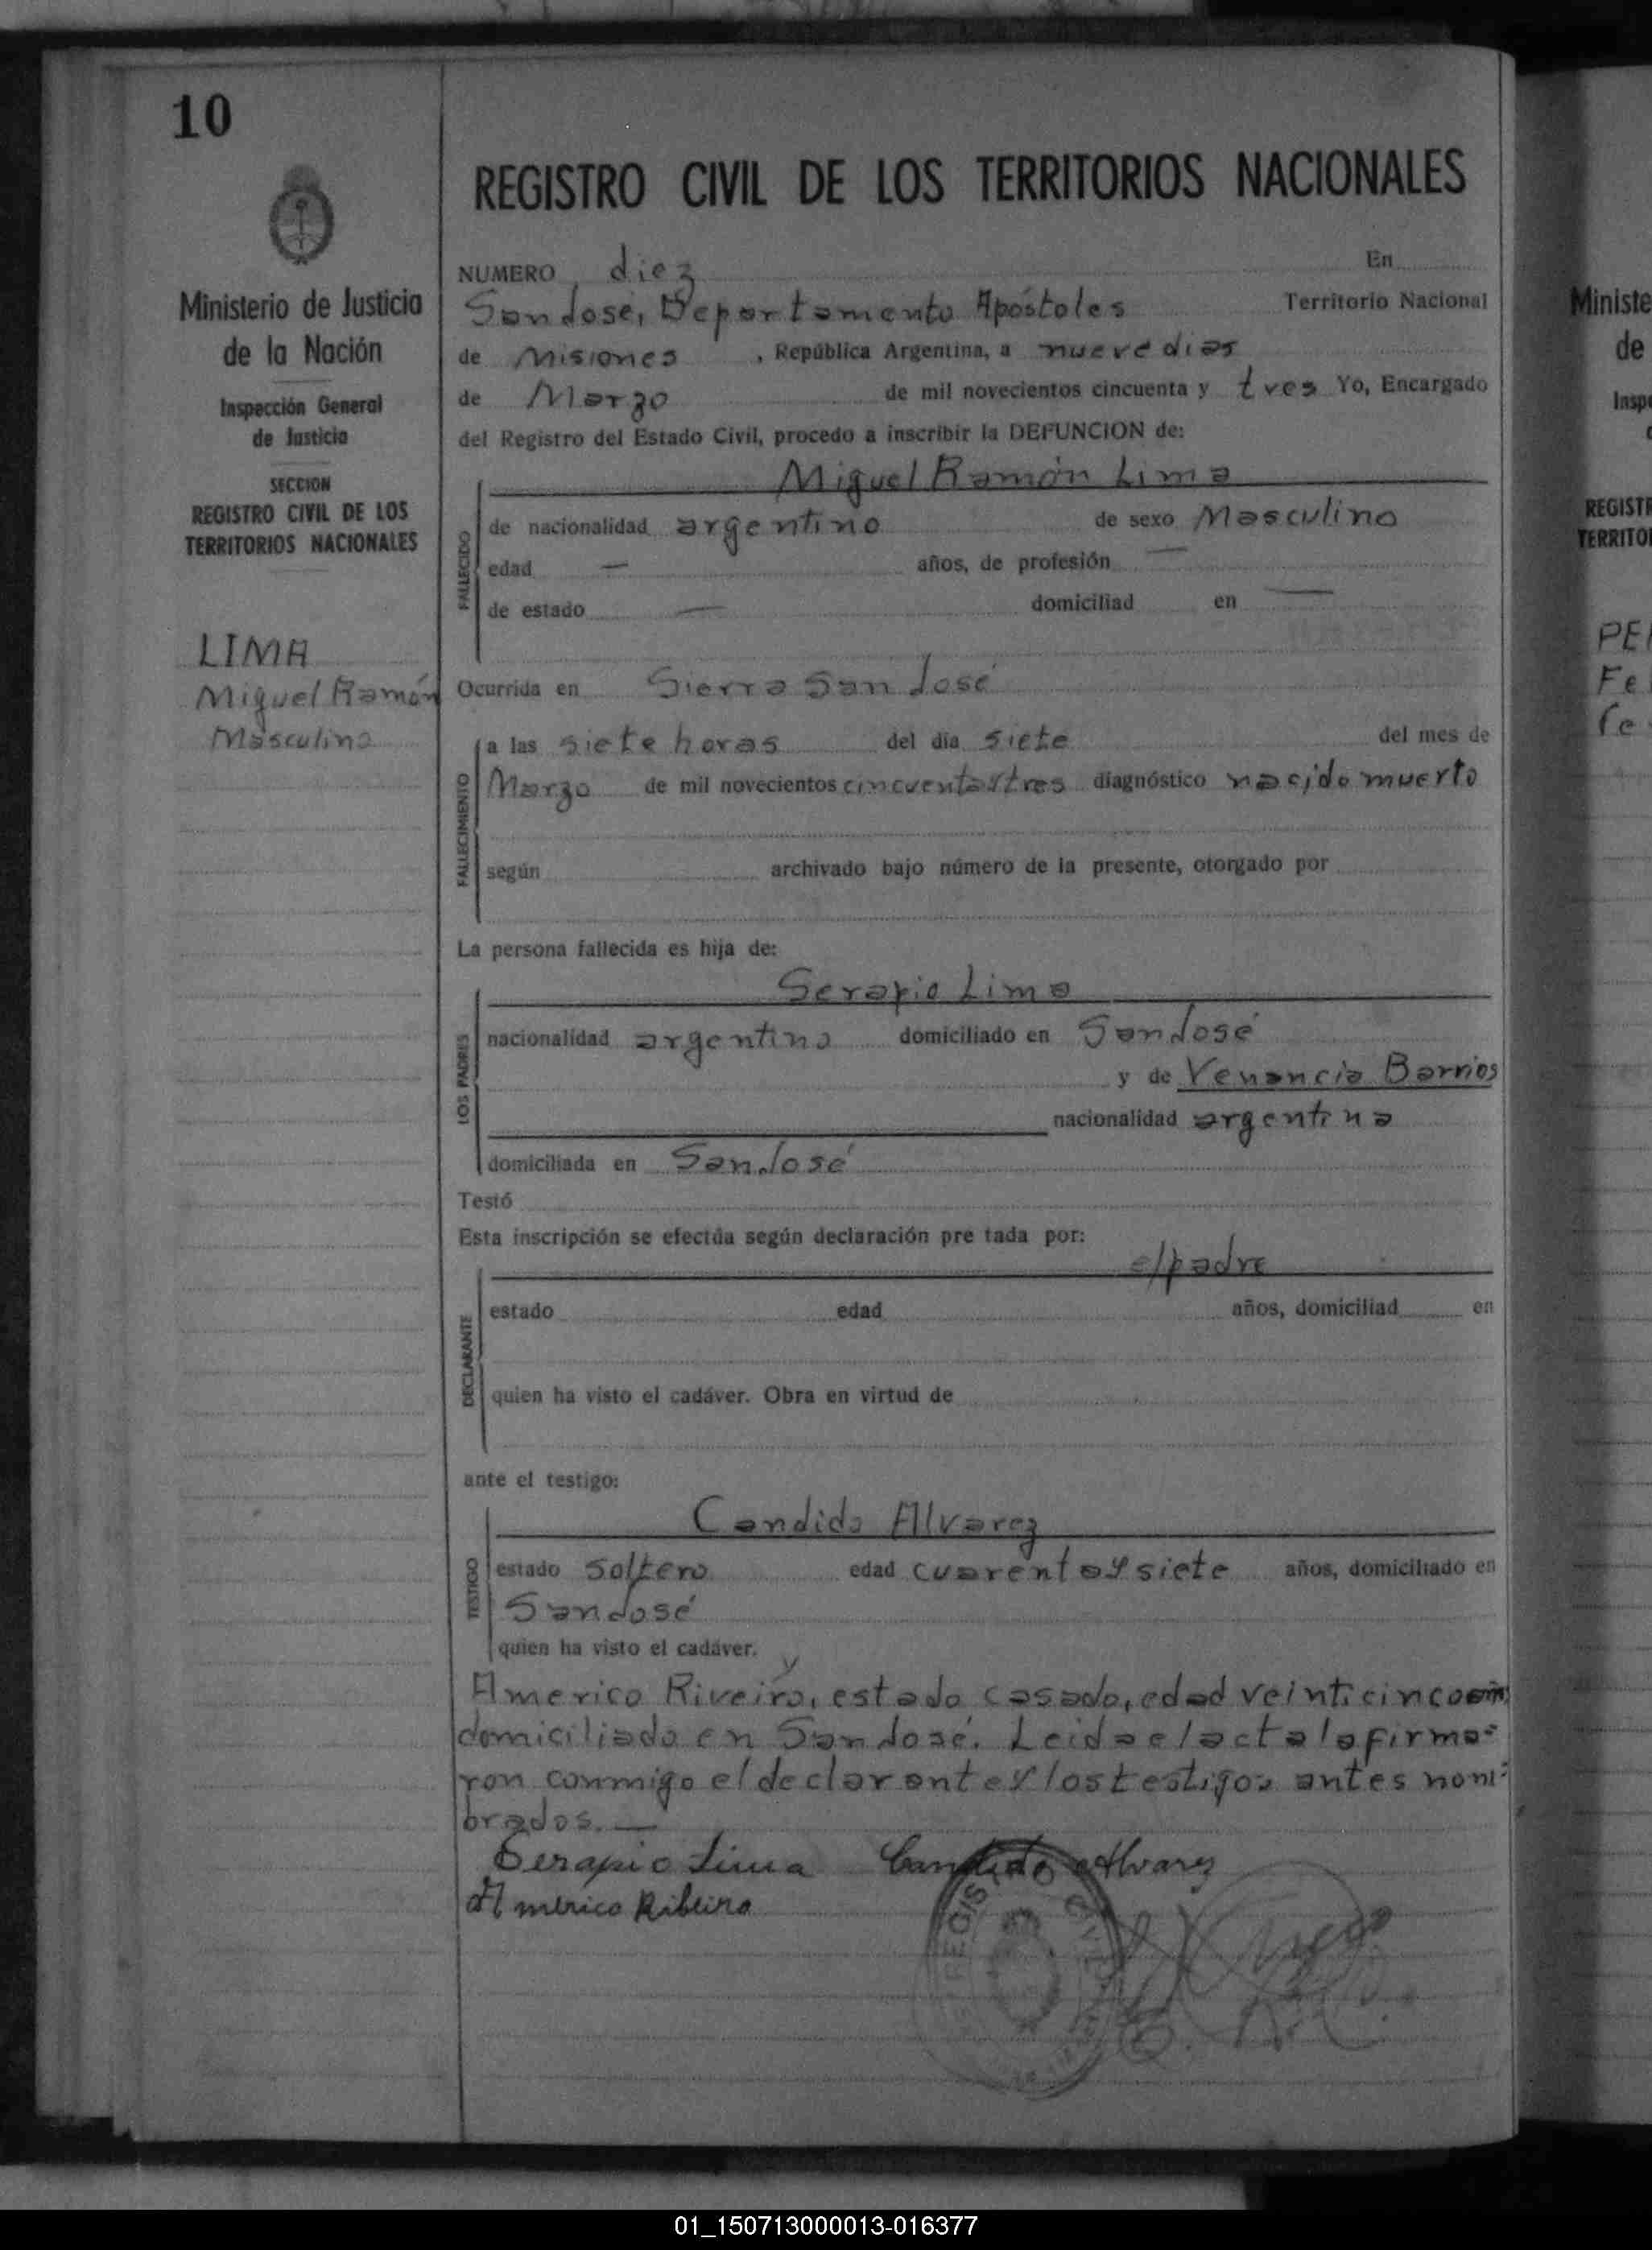 10
Ministerio de Justicia
de la Nación
Inspección General
de Justicia
SECCION
REGISTRO CIVIL DE LOS
TERRITORIOS NACIONALES
LIMA
Miguel Ramón
Masculino
REGISTRO CIVIL DE LOS TERRITORIOS NACIONALES
NUMERO diez En
San José, Departamento Apóstoles Territorio Nacional
de Misiones , República Argentina, a nueve dias
de Marzo de mil novecientos cincuenta y tres Yo, Encargado
del Registro del Estado Civil, procedo a inscribir la DEFUNCION de:
Miguel Ramón Lima
FALLECIDO
de nacionalidad argentino de sexo Masculino
edad — años, de profesión —
de estado — domiciliad en —
Ocurrida en Sierra San José
FALLECIMIENTO
a las siete horas del día siete del mes de
Marzo de mil novecientos cincuenta y tres diagnóstico nacido muerto
según archivado bajo número de la presente, otorgado por
La persona fallecida es hija de:
Serapio Lima
LOS PADRES
nacionalidad argentino domiciliado en San José
y de Venancia Barrios
nacionalidad argentina
domiciliada en San José
Testó
Esta inscripción se efectúa según declaración pre tada por:
el padre
DECLARANTE
estado edad años, domiciliad en
quien ha visto el cadáver. Obra en virtud de
ante el testigo:
Candido Alvarez
TESTIGO
estado soltero edad cuarenta y siete años, domiciliado en
San José
quien ha visto el cadáver. y
Americo Riveiro, estado casado, edad veinticinco
domiciliado en San José. Leida el acta la firma-
ron conmigo el declarante y los testigos antes nom-
brados. —
Serapio Lima Candido Alvarez
Americo Ribeiro
Ministe
de
Inspe
REGISTR
TERRITOR
PE
Fe
01_150713000013-016377